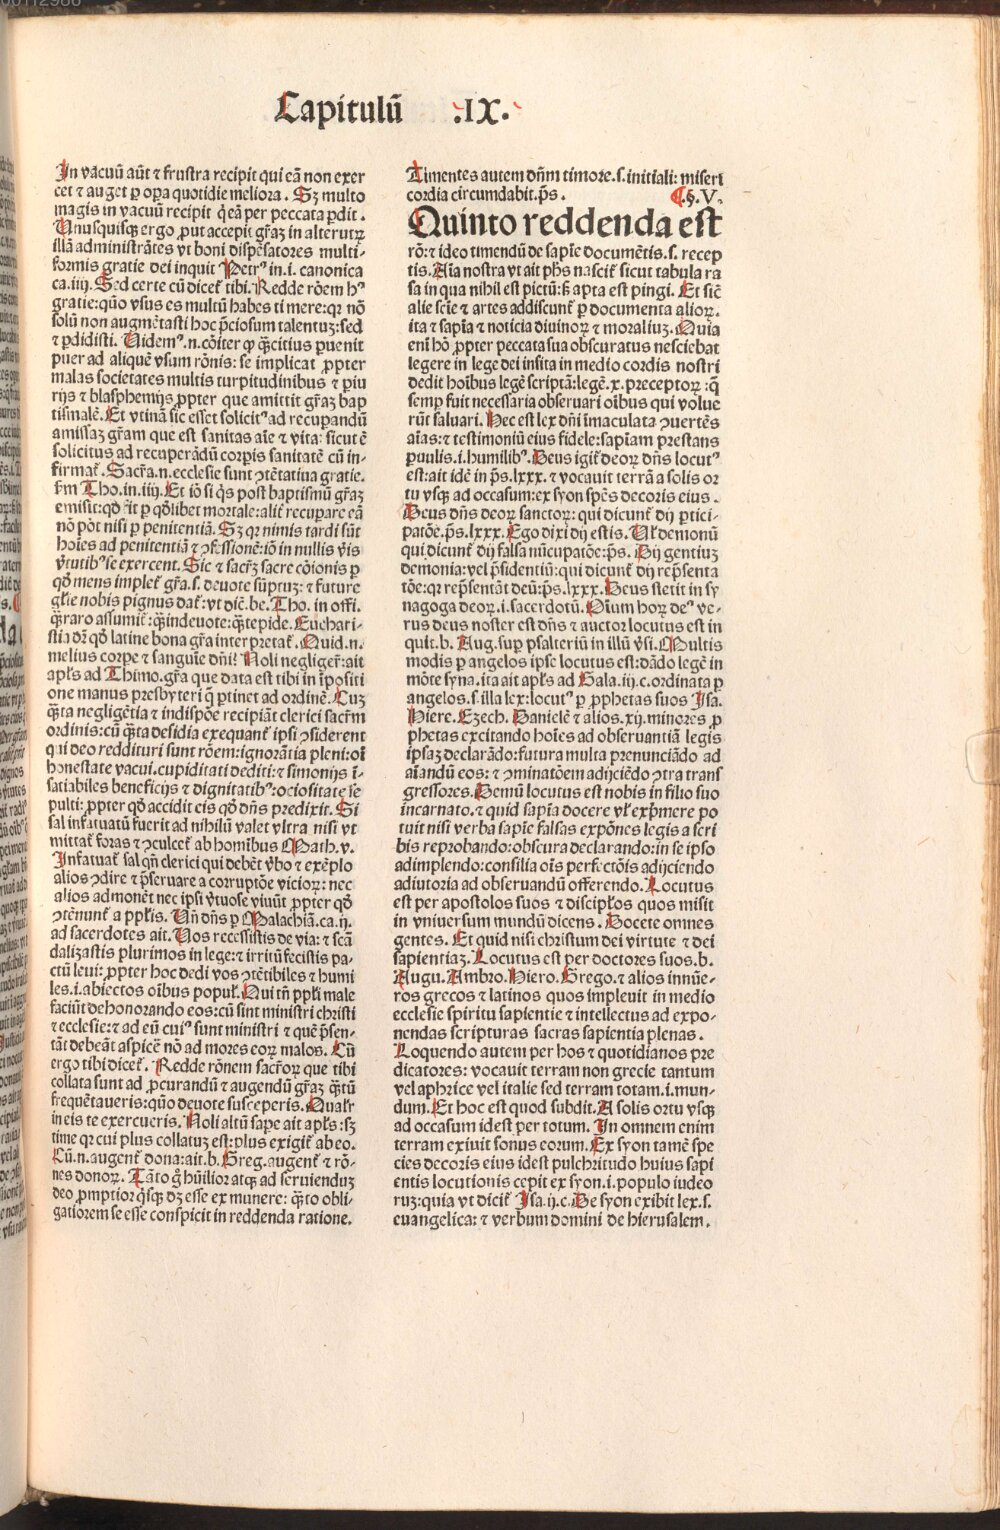 Capitulū .IX.
In vacuū aūt ⁊ frustra recipit qui eā non exer
cet ⁊ auget ꝑ oꝑa quotidie meliora. Sꝫ multo
magis in vacuū recipit q̇ eā per peccata ꝑdit.
Unusquisqꝫ ergo ꝓut accepit grāꝫ in alterutrꝝ
illā administrātes vt boni dispēsatores multi-
formis gratie dei inquit Petrꝰ in .i. canonica
ca.iiij. Sed certe cū dicet̉ tibi. Redde rōem hꝰ
gratie: quō vsus es multū habes timere: qꝛ nō
solū non augmētasti hoc p̄ciosum talentuꝫ: sed
⁊ ꝑdidisti. Uidemꝰ.n. cōiter ꝙ q̄citius ꝑuenit
puer ad aliquē vsum rōnis: se implicat ꝓpter
malas societates multis turpitudinibus ⁊ ꝑiu
rijs ⁊ blasphemijs ꝓpter que amittit grāꝫ bap
tismalē. Et vtinā sic esset solicitꝰ ad recupandū
amissaꝫ grām que est sanitas aīe ⁊ vita: sicut ē
solicitus ad recuperādū corꝑis sanitatē cū in-
firmat̉. Sacrā.n. ecclesie sunt ꝯtētatiua gratie.
fm Tho. in .iiij. Et iō si q̇s post baptismū grāꝫ
emisit: qd̓ fit ꝑ qd̓libet mortale: alit̉ recuꝑare eā
nō pōt nisi ꝑ penitentiā. Sꝫ qꝛ nimis tardi sūt
hoīes ad penitentiā ⁊ ꝯfessionē: iō in nullis v̄is
v̄tutibꝰ se exercent. Sic ⁊ sacrꝫ sacre cōionis ꝑ
qd̓ mens implet̉ grā.s. deuote sūptuꝫ: ⁊ future
gl̄ie nobis pignus dat̉: vt dic̄. be. Tho. in offi.
q̄raro assumit̉: q̄indeuote: q̄tepide. Euchari-
stia dꝛ qd̓ latine bona grā interpretat̉. Quid.n.
melius corpe ⁊ sanguīe dn̄i! Noli negliger̄: ait
apl̄s ad Thimo. grā que data est tibi in īpositi
one manus presbyteri q̄ ꝑtinet ad ordinē. Cuꝫ
q̄ta negligētia ⁊ indispōe recipiāt clerici sacr̄m
ordinis: cū q̄ta desidia exequant̉ ipsi ꝯsiderent
qui deo reddituri sunt rōem: ignorātia pleni: oī
honestate vacui. cupiditati dediti: ⁊ simonijs ī-
satiabiles beneficijs ⁊ dignitatibꝰ: ociositate se
pulti: ꝓpter qd̓ accidit eis qd̓ dn̄s predixit. Si
sal infatuatū fuerit ad nihilū valet vltra nisi vt
mittat̉ foras ⁊ ꝯculcet̉ ab hominibus Math. v.
Infatuat̉ sal qn̄ clerici qui debēt v̄bo ⁊ exēplo
alios ꝯdire ⁊ p̄seruare a corruptōe vicioꝝ: nec
alios admonēt nec ipsi v̄tuose viuūt ꝓpter qd̓
ꝯtēnunt̉ a ppl̄is. Un̄ dn̄s ꝑ Malachiā.ca.ij.
ad sacerdotes ait. Uos recessistis de via: ⁊ scā
dalizastis plurimos in lege: ⁊ irritū fecistis pa-
ctū leui: ꝓpter hoc dedi vos ꝯtētibiles ⁊ humi
les.i. abiectos oībus popul̉. Qui tn̄ ppl̄i male
faciūt dehonorando eos: cū sint ministri christi
⁊ ecclesie: ⁊ ad eū cuiꝰ sunt ministri ⁊ quē p̄sen-
tāt debeāt aspicē nō ad mores eoꝝ malos. Cū
ergo tibi dicet̉. Redde rōnem sacr̄oꝝ que tibi
collata sunt ad ꝓcurandū ⁊ augendū grāꝫ q̄tū
frequētaueris: quō deuote susceperis. Qualr̄
in eis te exercueris. Noli altū sape ait apl̄s: sꝫ
time qꝛ cui plus collatuꝫ est: plus exigit̉ ab eo.
Cū.n. augent̉ dona: ait.b. Greg. augent̉ ⁊ rō-
nes donoꝝ. Tāto g̊ hūilior atqꝫ ad seruienduꝫ
deo ꝓmptior q̇sqꝫ dꝫ esse ex munere: q̄to obli-
gatiorem se esse conspicit in reddenda ratione.
Timentes autem dn̄m timore.s. initiali: miseri
cordia circumdabit. ps̄. ¶.§.V.
Quinto reddenda est
rō: ⁊ ideo timendū de sapīe documētis.s. recep
tis. Aīa nostra vt ait phs̄ nascit̉ sicut tabula ra
sa in qua nihil est pictū: sꝫ apta est pingi. Et sic̄
alie scīe ⁊ artes addiscunt̉ ꝑ documenta alioꝝ.
ita ⁊ sapīa ⁊ noticia diuinoꝝ ⁊ moraliuꝫ. Quia
enī hō ꝓpter peccata sua obscuratus nesciebat
legere in lege dei insita in medio cordis nostri
dedit hoībus legē scriptā: legē.x. preceptoꝝ: q̄
semꝑ fuit necessaria obseruari oībus qui volue
rūt saluari. Hec est lex dn̄i īmaculata ꝯuertēs
aīas: ⁊ testimoniū eius fidele: sapīam prestans
ꝑuulis.i. humilibꝰ. Deus igit̉ deoꝝ dn̄s locutꝰ
est: ait idē in ps̄.lxxx. ⁊ vocauit terrā a solis or
tu vsqꝫ ad occasum: ex syon spēs decoris eius.
Deus dn̄s deoꝝ sanctoꝝ: qui dicunt̉ dij ꝑtici-
patōe. ps̄. lxxx. Ego dixi dij estis. Ul̄ demonū
qui dicunt̉ dij falsa nūcupatōe: ps̄. Dij gentiuꝫ
demonia: vel p̄sidentiū: qui dicunt̉ dij rep̄senta
tōe: qꝛ rep̄sentāt deū: ps̄. lxxx. Deus stetit in sy
nagoga deoꝝ.i. sacerdotū. Oīum hoꝝ deꝰ ve-
rus deus noster est dn̄s ⁊ auctor locutus est in
quit. b. Aug. suꝑ psalteriū in illū v̄si. Multis
modis ꝑ angelos ipse locutus est: dādo legē in
mōte syna. ita ait apl̄s ad Gala. iij.c. ordinata ꝑ
angelos.s. illa lex: locutꝰ ꝑ ꝓphetas suos Isa.
Hiere. Ezech. Danielē ⁊ alios. xij. minores ꝓ
phetas excitando hoīes ad obseruantiā legis
ipsaꝫ declarādo: futura multa prenunciādo ad
aīandū eos: ⁊ ꝯminatōem adijciēdo ꝯtra trans
gressores. Demū locutus est nobis in filio suo
incarnato. ⁊ quid sapīa docere vl̄ exp̄mere po
tuit nisi verba sapīe falsas expōnes legis a scri
bis reprobando: obscura declarando: in se ipso
adimplendo: consilia oīs perfectōis adijciendo
adiutoria ad obseruandū offerendo. Locutus
est per apostolos suos ⁊ discipl̄os quos misit
in vniuersum mundū dicens. Docete omnes
gentes. Et quid nisi christum dei virtutē ⁊ dei
sapientiaꝫ. Locutus est per doctores suos. b.
Augu. Ambro. Hiero. Grego. ⁊ alios innūe-
ros grecos ⁊ latinos quos impleuit in medio
ecclesie spiritu sapientie ⁊ intellectus ad expo-
nendas scripturas sacras sapientia plenas.
Loquendo autem per hos ⁊ quotidianos pre
dicatores: vocauit terram non grecie tantum
vel aphrice vel italie sed terram totam.i. mun-
dum. Et hoc est quod subdit. A solis ortu vsqꝫ
ad occasum idest per totum. In omnem enim
terram exiuit sonus eorum. Ex syon tamē spe
cies decoris eius idest pulchritudo huius sapi
entis locutionis cepit ex syon.i. populo iudeo
ruꝫ: quia vt dicit̉ Isa. ij.c. De syon exibit lex.s.
euangelica: ⁊ verbum domini de hierusalem.